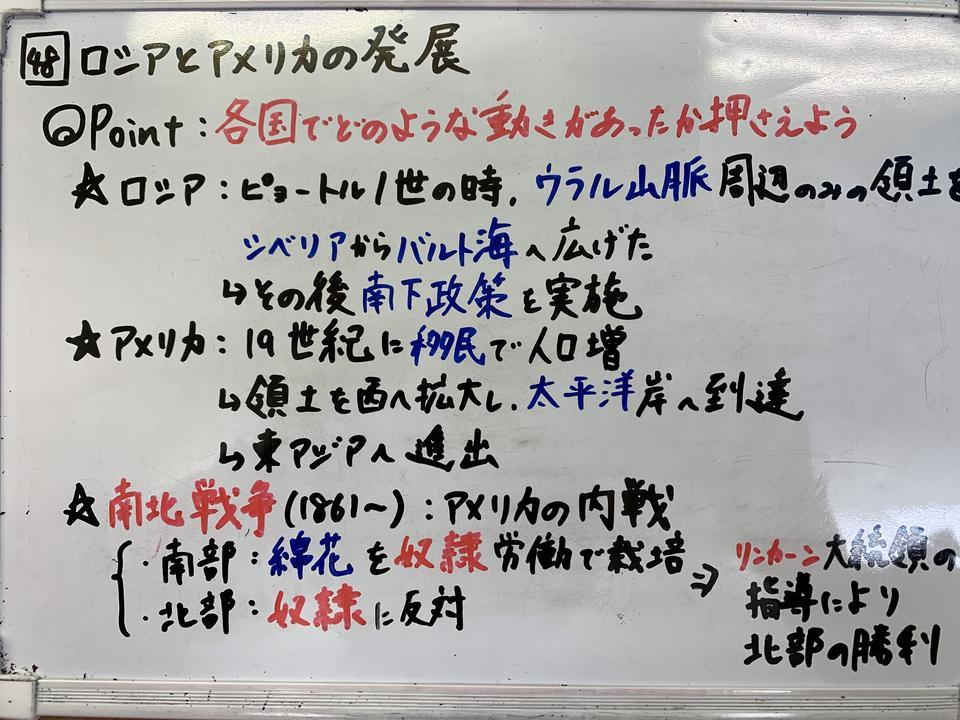 48 ロシアとアメリカの発展
◎Point:各国でどのような動きがあったか押さえよう
☆ロシア:ピョートル1世の時,ウラル山脈周辺のみの領土を
シベリアからバルト海へ広げた
↳その後南下政策を実施
☆アメリカ:19世紀に移民で人口増
↳領土を西へ拡大し,太平洋岸へ到達
↳東アジアへ進出
☆南北戦争(1861~):アメリカの内戦
・南部:綿花を奴隷労働で栽培
・北部:奴隷に反対
⇒リンカーン大統領の
指導により
北部の勝利